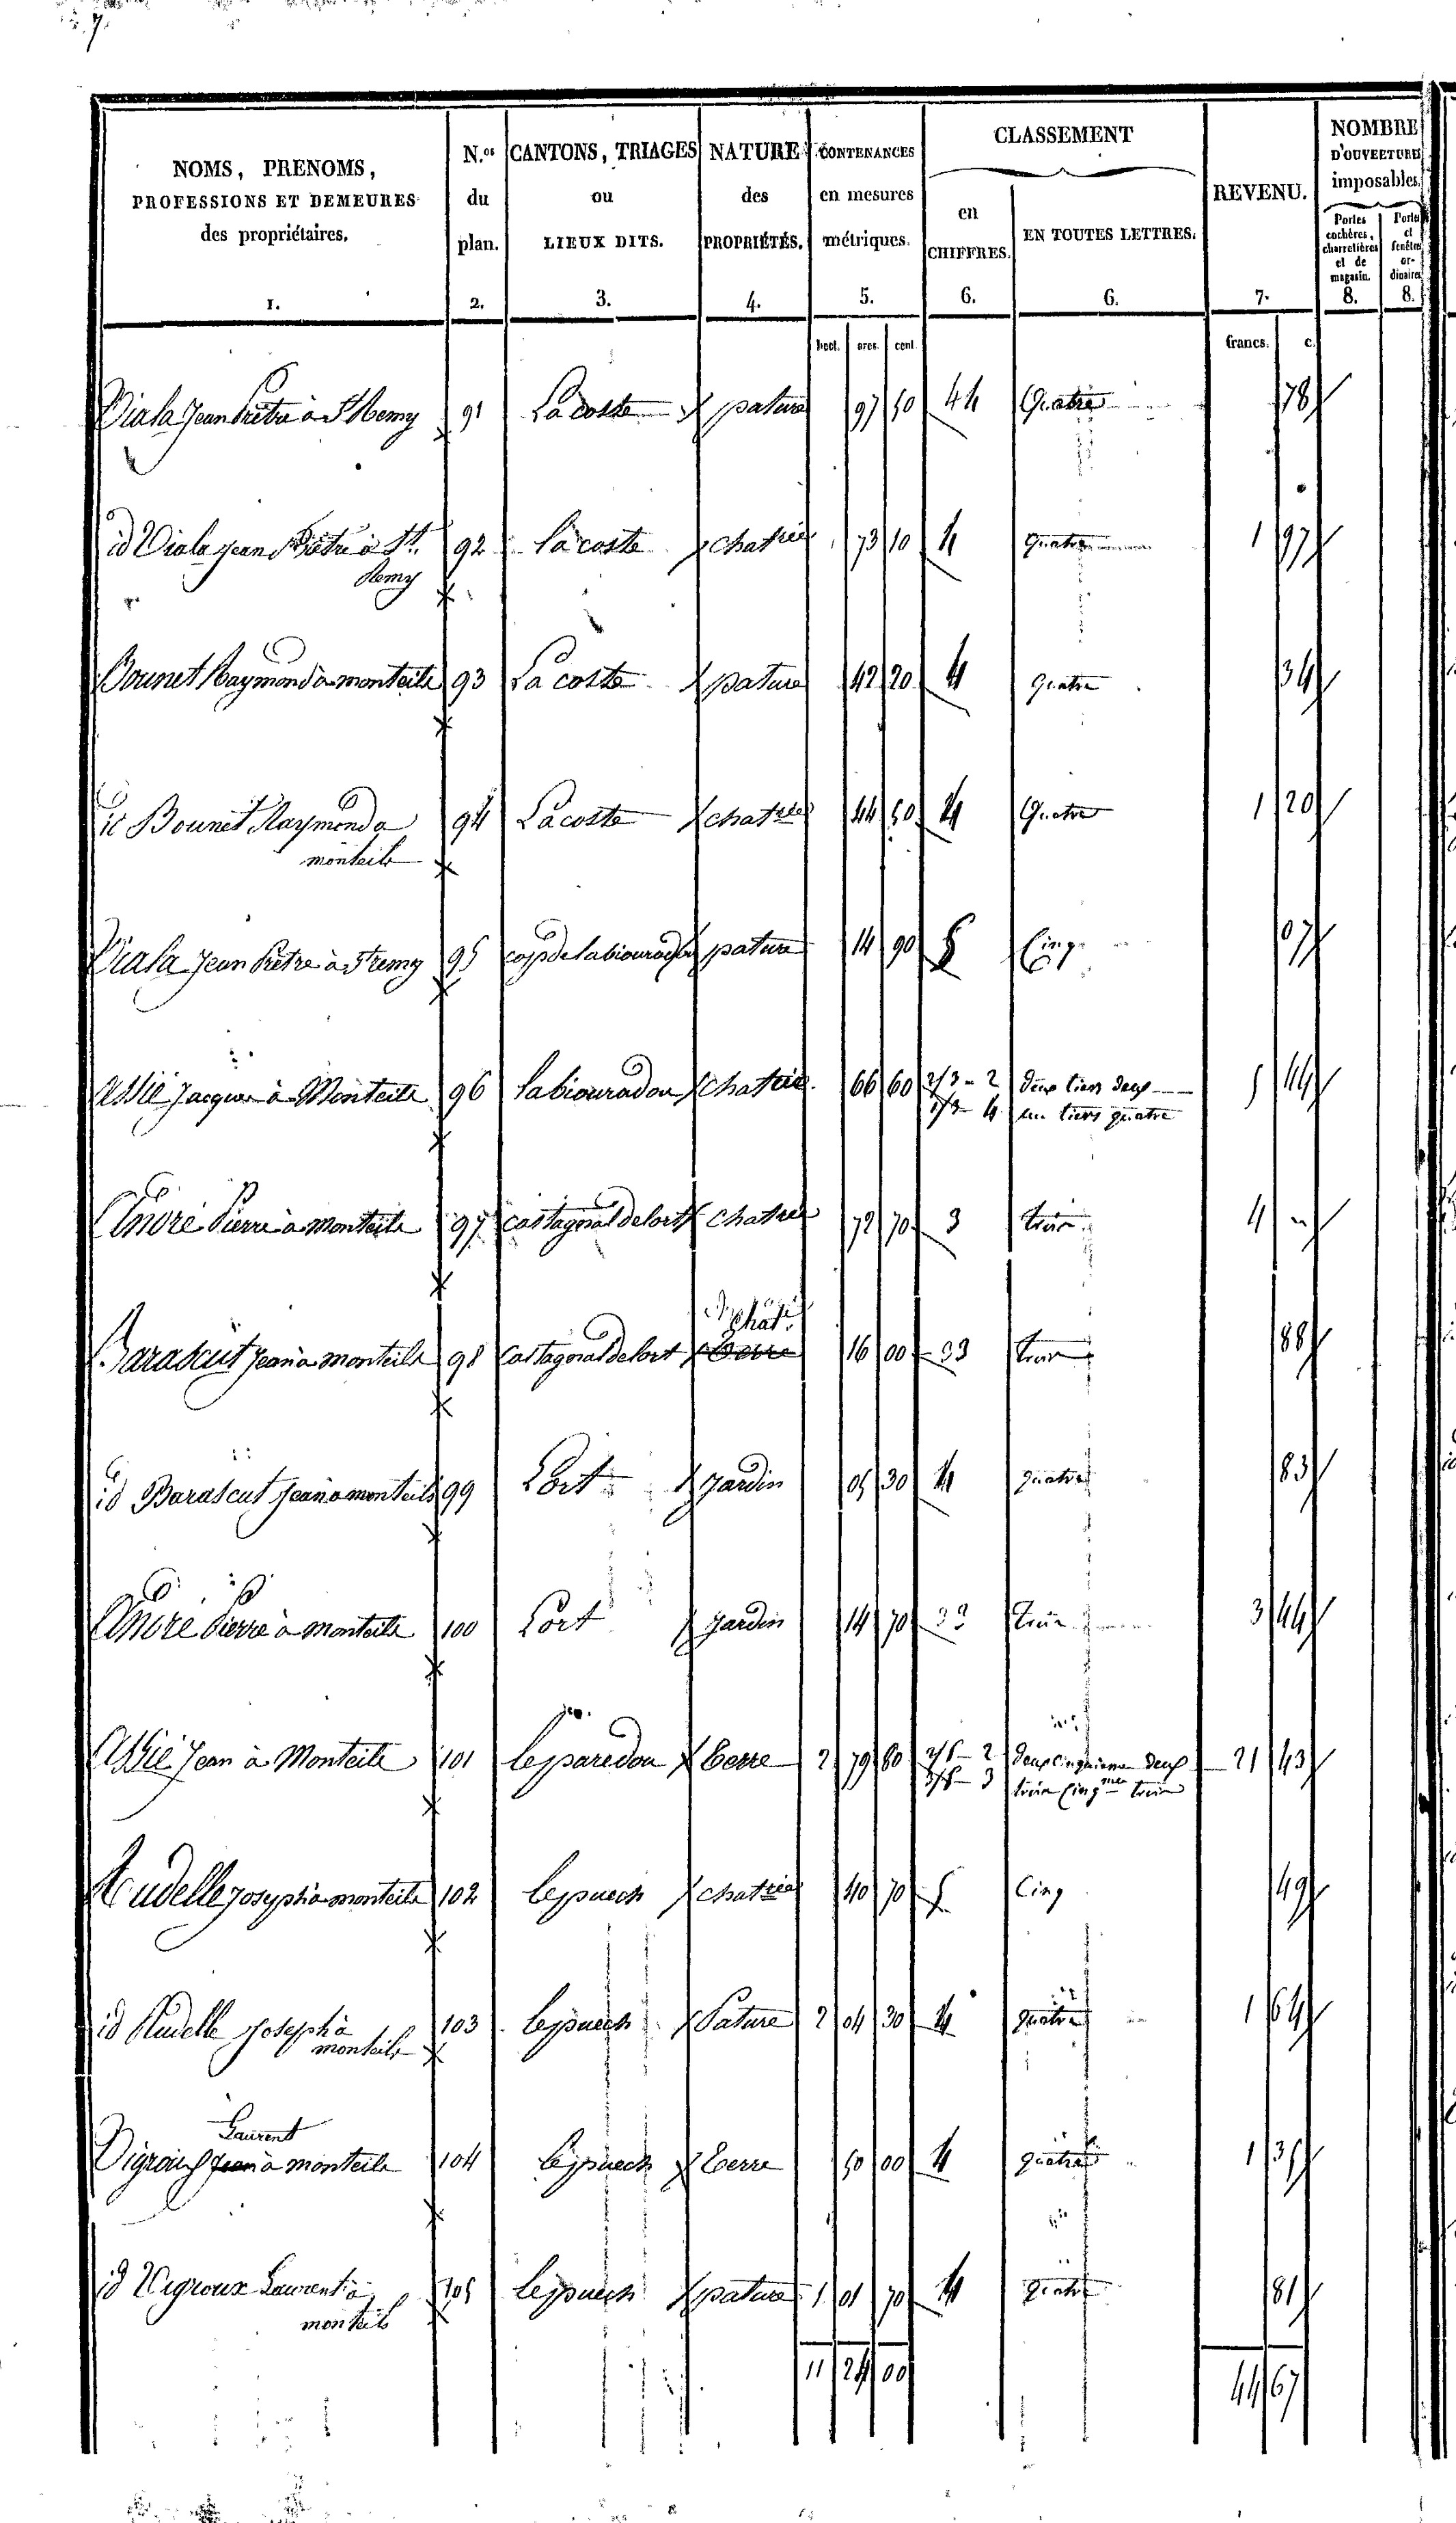 7.
NOMS, PRENOMS, PROFESSIONS ET DEMEURES des propriétaires. 1.
N.os du plan. 2.
CANTONS, TRIAGES ou LIEUX DITS. 3.
NATURE des PROPRIÉTÉS. 4.
CONTENANCES en mesures métriques. 5.
CLASSEMENT
en CHIFFRES. 6.
EN TOUTES LETTRES. 6.
REVENU. 7.
NOMBRE D'OUVERTURES imposables.
Portes cochères, charretières et de magasin. 8.
Portes et fenêtres ordinaires 8.
hect. ares. cent. francs. c.
Viala Jean Prêtre à St Remy 91 La coste pature 97 50 4 4 Quatre 78
id Viala Jean Prêtre à St. Remy 92 la coste chatrée 73 10 4 quatre 1 97
Bounet Raymond à monteils 93 La coste pature 42 20 4 quatre 34
id Bounet Raymond a monteils 94 La coste chatrée 44 50 4 Quatre 1 20
Viala Jean Prêtre à St remy 95 pature 14 90 5 Cinq 07
Assié Jacques à Monteils 96 labiouradou chatrée 66 60 2/3 - 2 deux tiers deux 5 44
1/3 - 4 un tiers quatre
André Pierre à monteils 97 castagnal de lort chatrée 72 70 3 trois 4 "
Barascut Jean à monteils 98 castagnal de lort terre chât. 16 00 3 3 trois 88
id Barascut Jean à monteils 99 Lort Jardin 05 30 4 quatre 83
André Pierre à monteils 100 Lort Jardin 14 70 3 3 trois 3 44
Assié Jean à Monteils 101 le paredou terre 2 79 80 2/5 - 2 deux cinquieme deux 21 43
3/5 - 3 trois cinqmes trois
Rudelle Joseph à monteils 102 le puech chatrée 40 70 5 Cinq 49
id Rudelle Joseph à monteils 103 le puech Pature 2 04 30 4 quatre 1 64
Vigroux Jean Laurent à monteils 104 le puech terre 50 00 4 quatre 1 35
id Vigroux Laurent à monteils 105 le puech pature 1 01 70 4 quatre 81
11 24 00 44 67